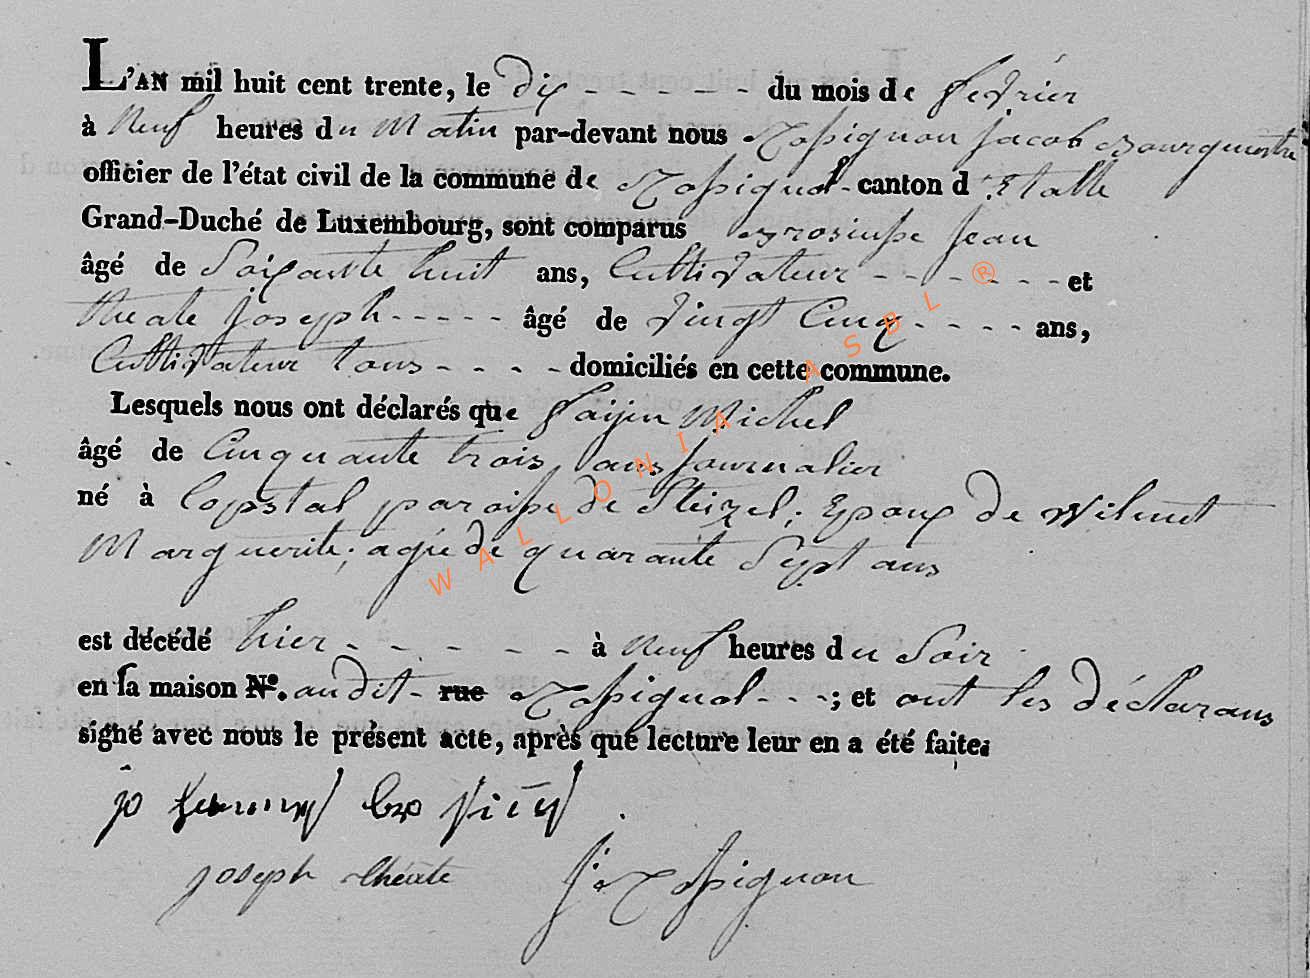 L'AN mil huit cent trente, le dix - - - - - - du mois de fevrier
à Neuf heures du Matin par-devant nous Rossignon Jacob Bourguestre
officier de l'état civil de la commune de Rossignol - canton d'Etalle
Grand-Duché de Luxembourg, sont comparus Jean
âgé de Soixante huit ans, Cultivateur - - - - - - et
theate Joseph - - - - - âgé de Vingt Cinq - - - - ans,
Cultivateur tous - - - - domiciliés en cette commune.
Lesquels nous ont déclarés que Michel
âgé de Cinquante trois ans Journalier
né à Copstal paroisse de Steizel; Epoux de Wilmet
Marguerite; agée de quarante Sept ans
est décédé hier - - - - - à Neuf heures du Soir
en la maison N°. audit - rue Rossignol - - -; et ont les déclarans
signé avec nous le présent acte, après que lecture leur en a été faite.
joseph theate J: Rossignon
WALLONIA ASBL ®